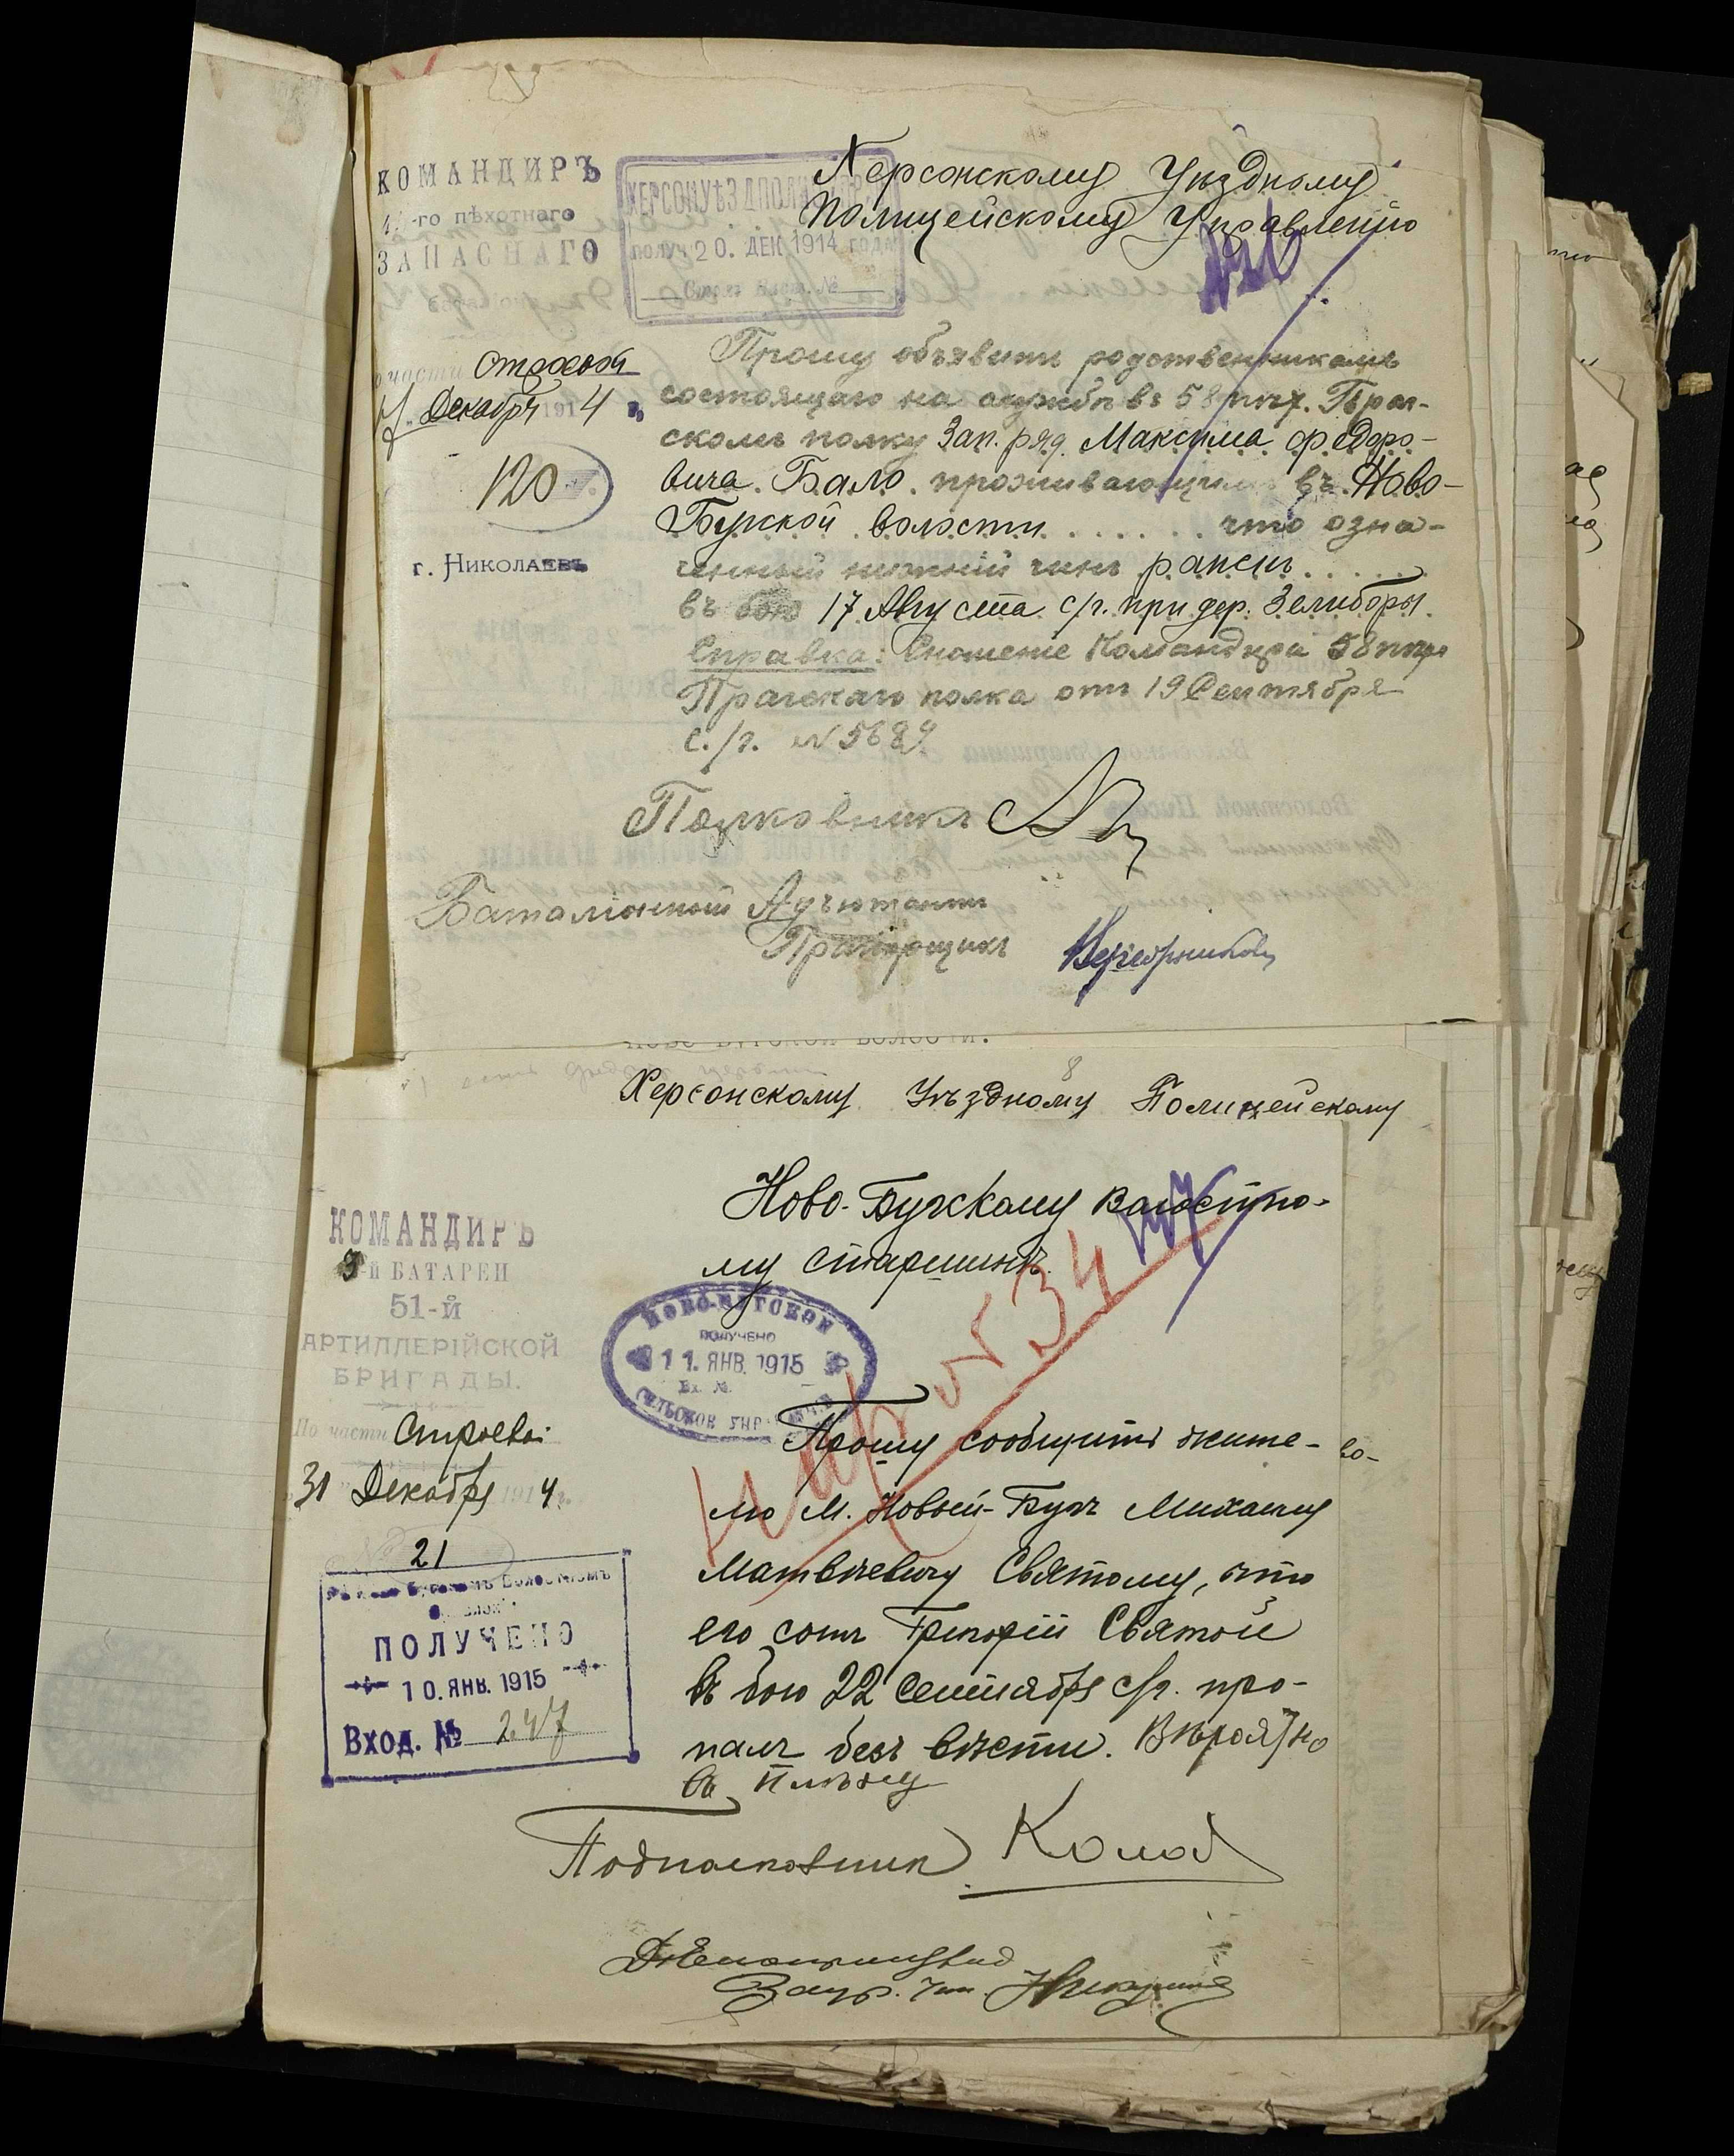 КОМАНДИРЪ
-го пѣхотнаго
ЗАПАСНАГО
ХЕРСОНУѢЗДПОЛИ
получ 20. ДЕК. 1914 года
Херсонскому Уѣздному
Полицейскому Управленію
о части строевой
7. Декабря 1914 г.
120
г. НИКОЛАЕВЪ
Прошу объявить родственникамъ
состоящаго на службѣ въ 58 пѣх. Праг-
скомъ полку Зап. ряд. Максима Федоро-
вича Бало проживающимъ въ Ново-
Бугской волости что озна-
ченный нижній чинъ раненъ
въ бою 17 Августа с/г. при дер. Зелиборы.
Справка: Сношеніе Командира 58 пѣх
Прагскаго полка отъ 19 Сентября
с./г. № 5689
Полковникъ
Баталіонный Адъютантъ
Прапорщикъ
8
Херсонскому Уѣздному Полицейскому
КОМАНДИРЪ
3-й БАТАРЕИ
51-й
АРТИЛЛЕРІЙСКОЙ
БРИГАДЫ.
По части Строевой
31 Декабря 1914 г.
№ 21
ПОЛУЧЕНО
10. ЯНВ. 1915
Вход. № 247
Ново-Бугскому Волостно-
му старшинѣ.
НОВО-БУГСКОЕ
ПОЛУЧЕНО
11. ЯНВ. 1915
Вх. №
СЕЛЬСКОЕ УПРАВЛЕНІЕ
№ 34
Прошу сообщить жите-
лю М. Новый-Бугъ Михаилу
Матвѣевичу Святому, что
его сынъ Григорій Святой
въ бою 22 сентября с/г. про-
палъ безъ вѣсти. Вѣроятно
въ плѣну
Подполковникъ